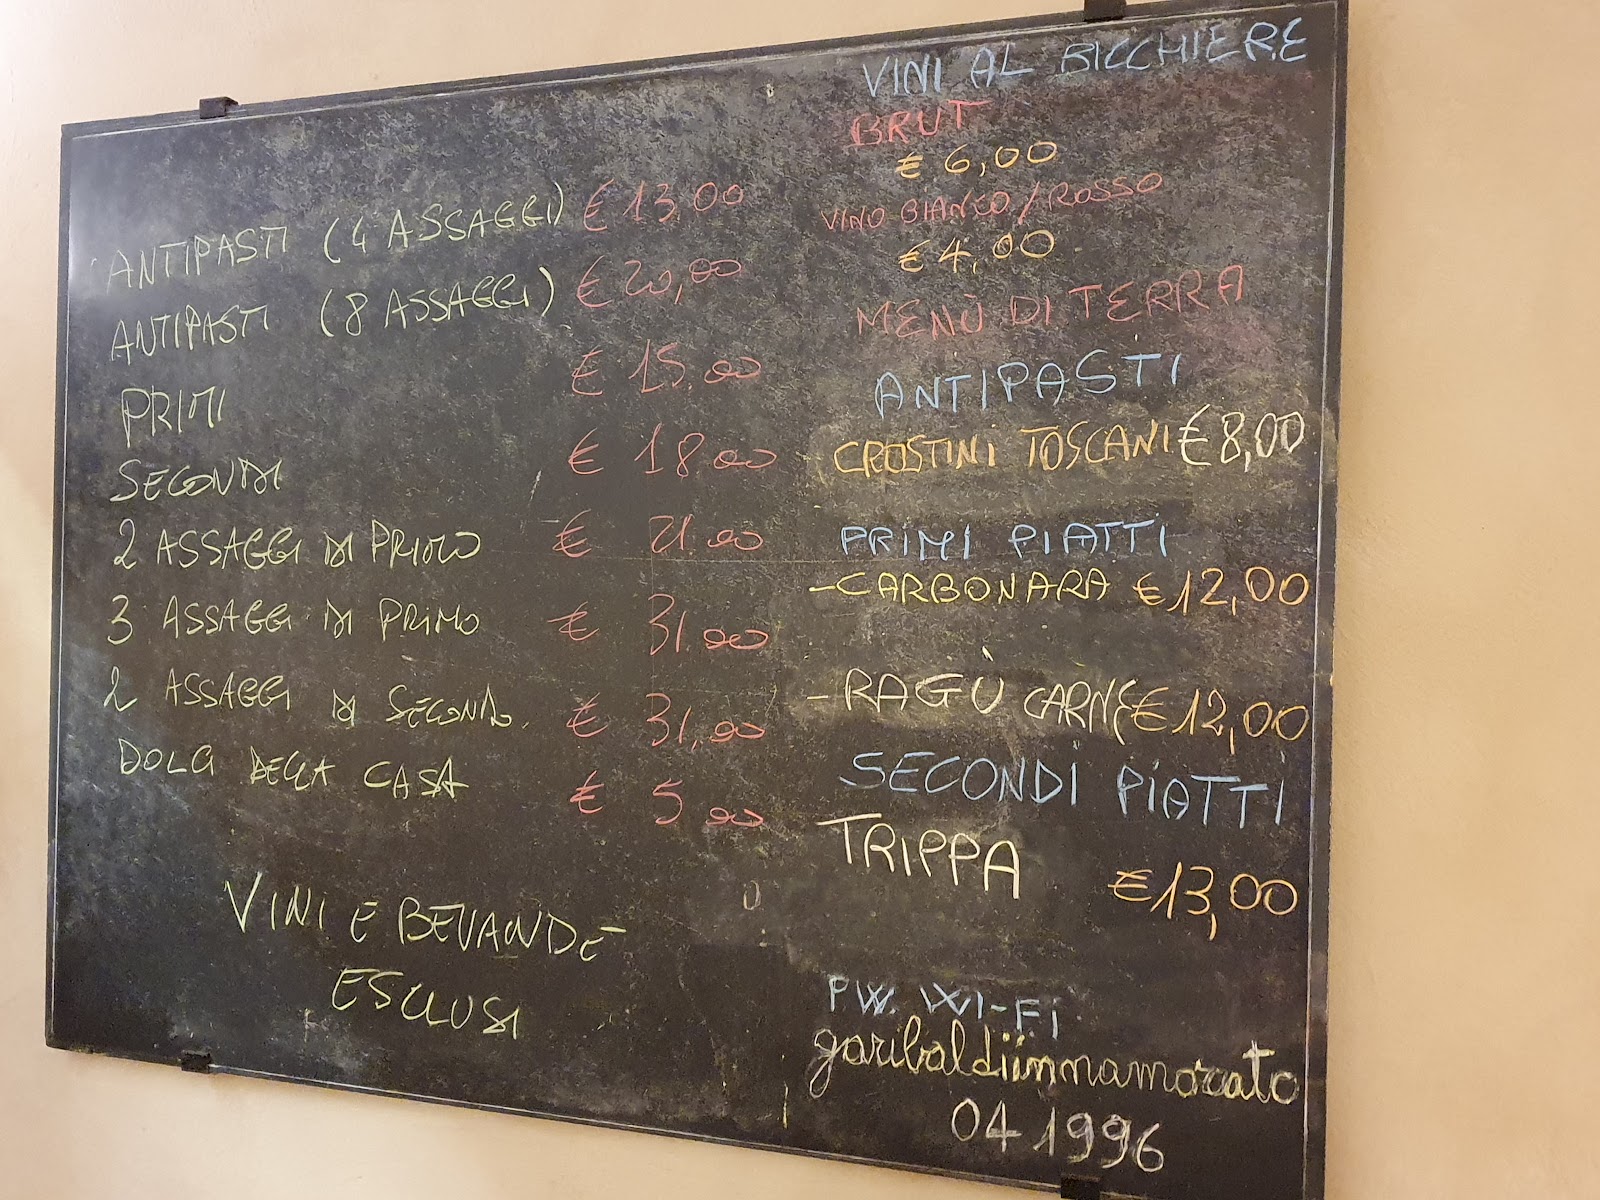 ANTIPASTI (4 ASSAGGI) € 13,00
ANTIPASTI (8 ASSAGGI) € 20,00
PRIMI € 15.00
SECONDI € 18.00
2 ASSAGGI DI PRIMO € 21.00
3 ASSAGGI DI PRIMO € 31.00
2 ASSAGGI DI SECONDO. € 31,00
DOLCI DELLA CASA € 5,00
VINI E BEVANDE
ESCLUSI
VINI AL BICCHIERE
BRUT
€ 6,00
VINO BIANCO/ROSSO
€ 4,00
MENÙ DI TERRA
ANTIPASTI
CROSTINI TOSCANI € 8,00
PRIMI PIATTI
-CARBONARA € 12,00
-RAGÙ CARNE € 12,00
SECONDI PIATTI
TRIPPA
€ 13,00
PW. WI-Fi
garibaldiinnamorato
041996